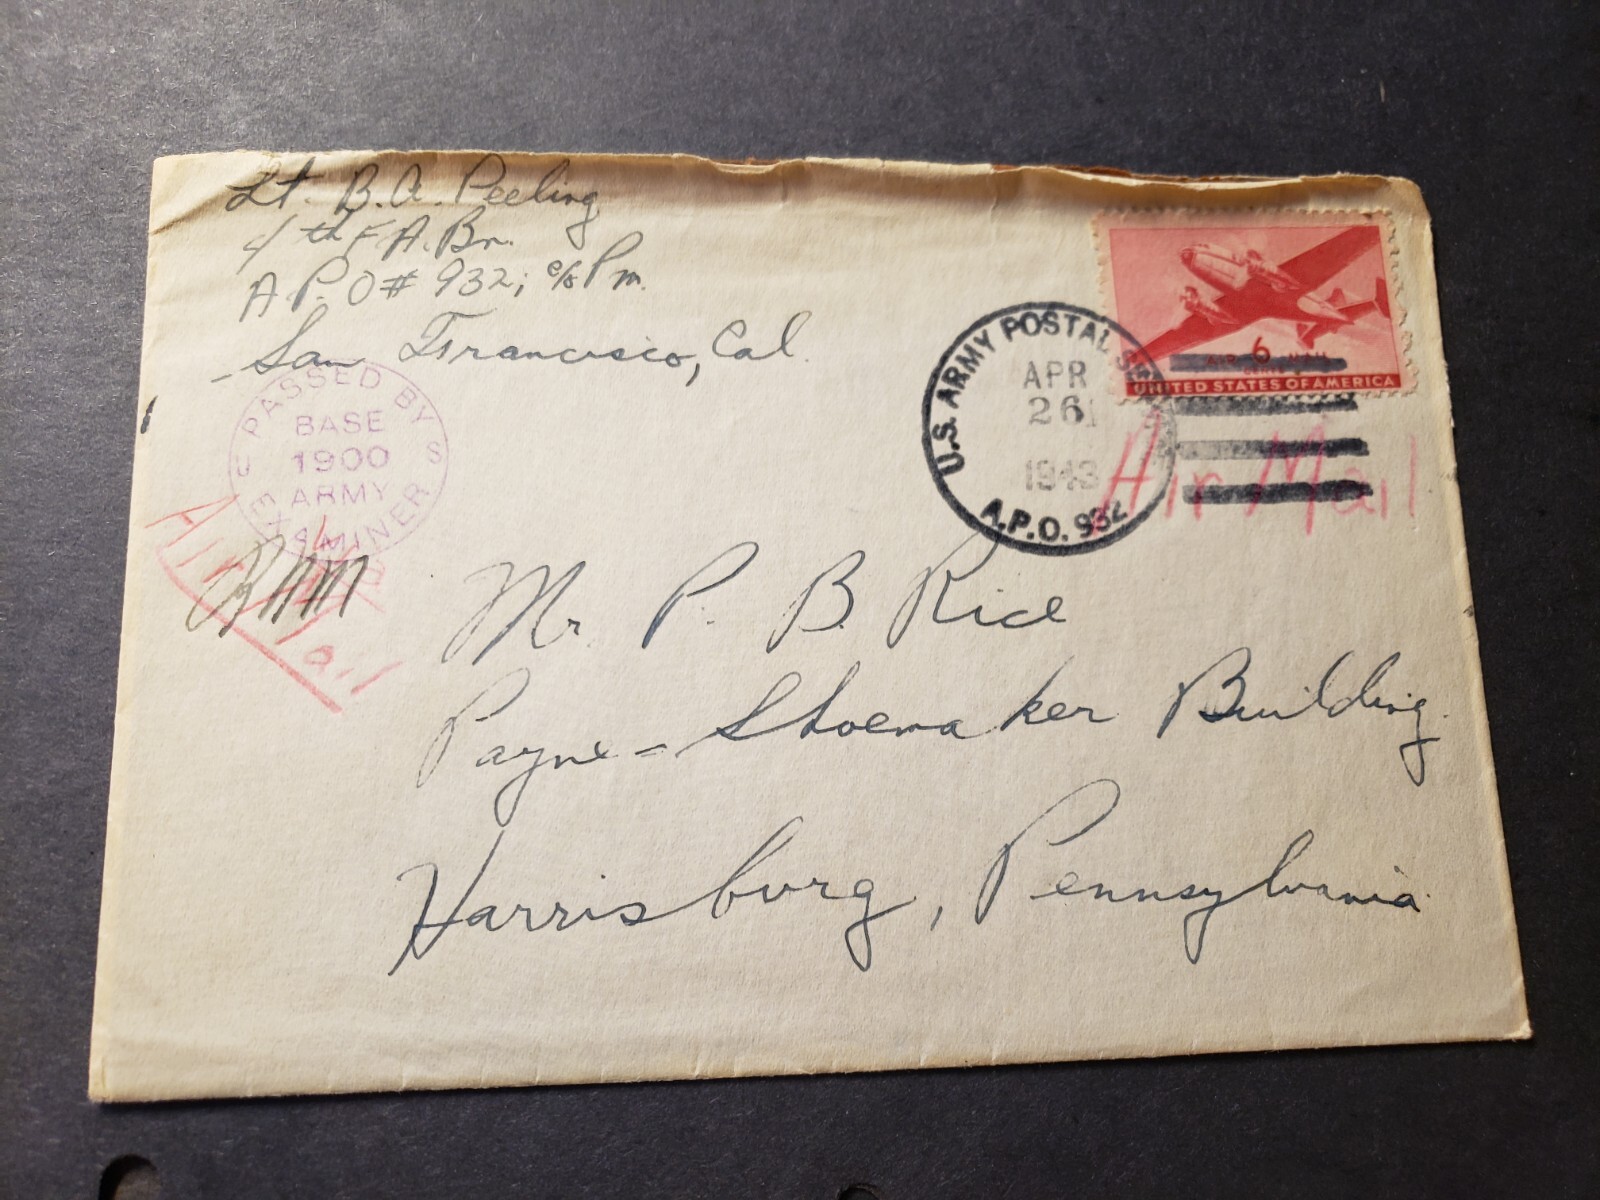 Lt. B. A. Peeling
th F A. Bn.
A. P. O # 932; c/o Pm.
San Francisco, Cal.
PASSED BY
BASE
1900
ARMY
EXAMINER
U S
Air Mail
U.S. ARMY POSTAL
APR
26
1943
A.P.O. 932
6
UNITED STATES OF AMERICA
Air Mail
Mr. P. B. Rice
Payne = Shoemaker Building.
Harrisburg, Pennsylvania